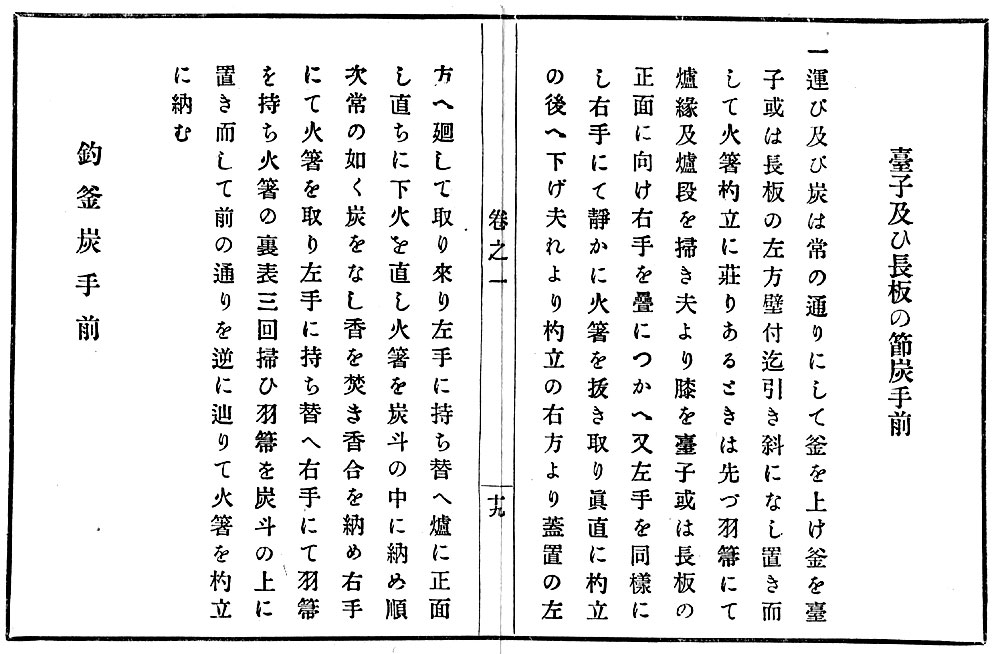 臺子及ひ長板の節炭手前
一運び及び炭は常の通りにして釜を上げ釜を臺
子或は長板の左方壁付迄引き斜になし置き而
して火箸杓立に莊りあるときは先づ羽箒にて
爐緣及爐段を掃き夫より膝を臺子或は長板の
正面に向け右手を疊につかへ又左手を同樣に
し右手にて靜かに火箸を拔き取り眞直に杓立
の後へ下げ夫れより杓立の右方より蓋置の左
卷之一
十九
方へ廻して取り來り左手に持ち替へ爐に正面
し直ちに下火を直し火箸を炭斗の中に納め順
次常の如く炭をなし香を焚き香合を納め右手
にて火箸を取り左手に持ち替へ右手にて羽箒
を持ち火箸の裏表三回掃ひ羽箒を炭斗の上に
置き而して前の通りを逆に辿りて火箸を杓立
に納む
釣釜炭手前